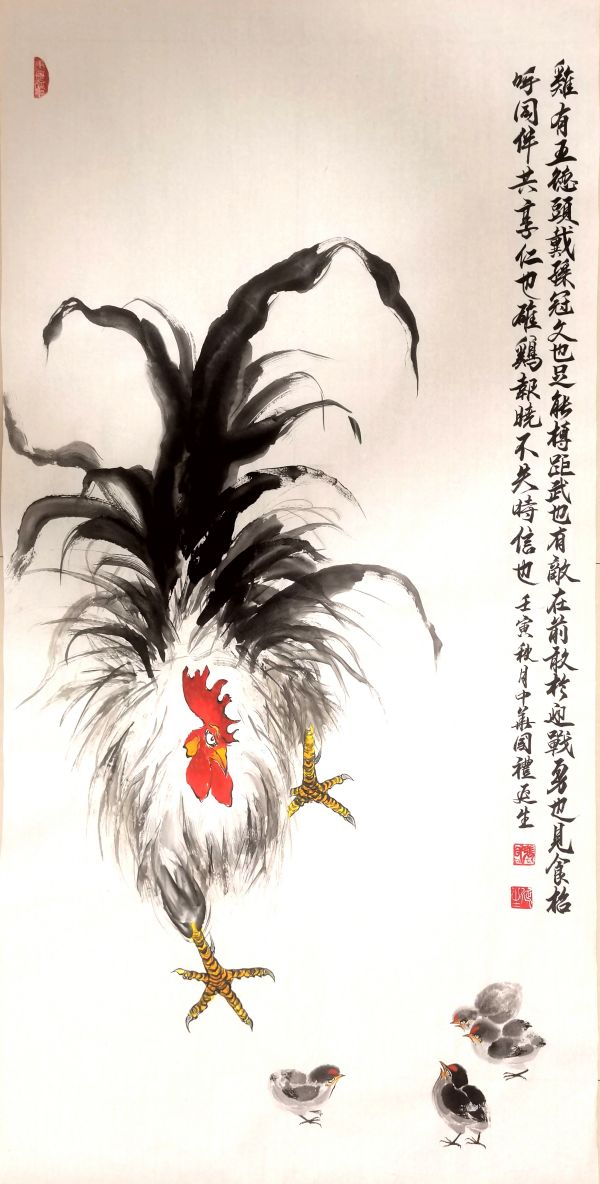 雞有五德頭戴採冠文也足能搏距武也有敵在前敢於迎戰勇也見食招
呼同伴共享仁也雄鷄報曉不失時信也 壬寅秋月中華國禮延生